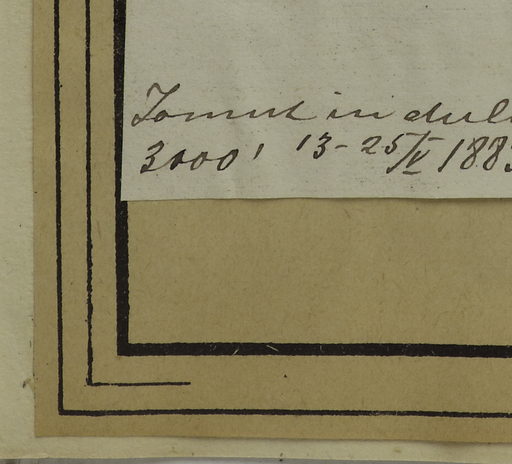 Tomut in dul
3000' 13-25/V 1883